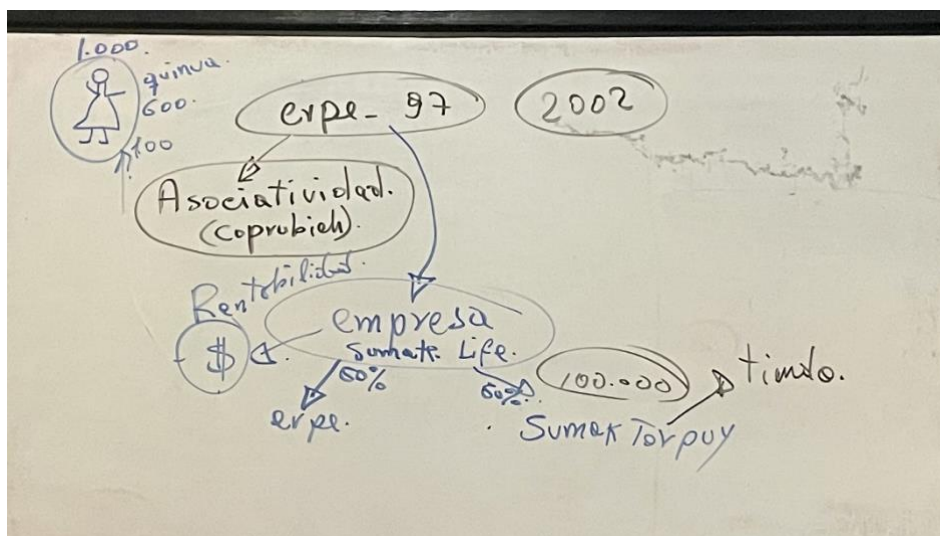 1.000.
quinua.
600.
100
erpe - 97
2002
Asociatividad.
(Coprobich).
Rentabilidad.
$
empresa
Sumak Life.
50%
50%
erpe.
100.000
Sumak Tarpuy